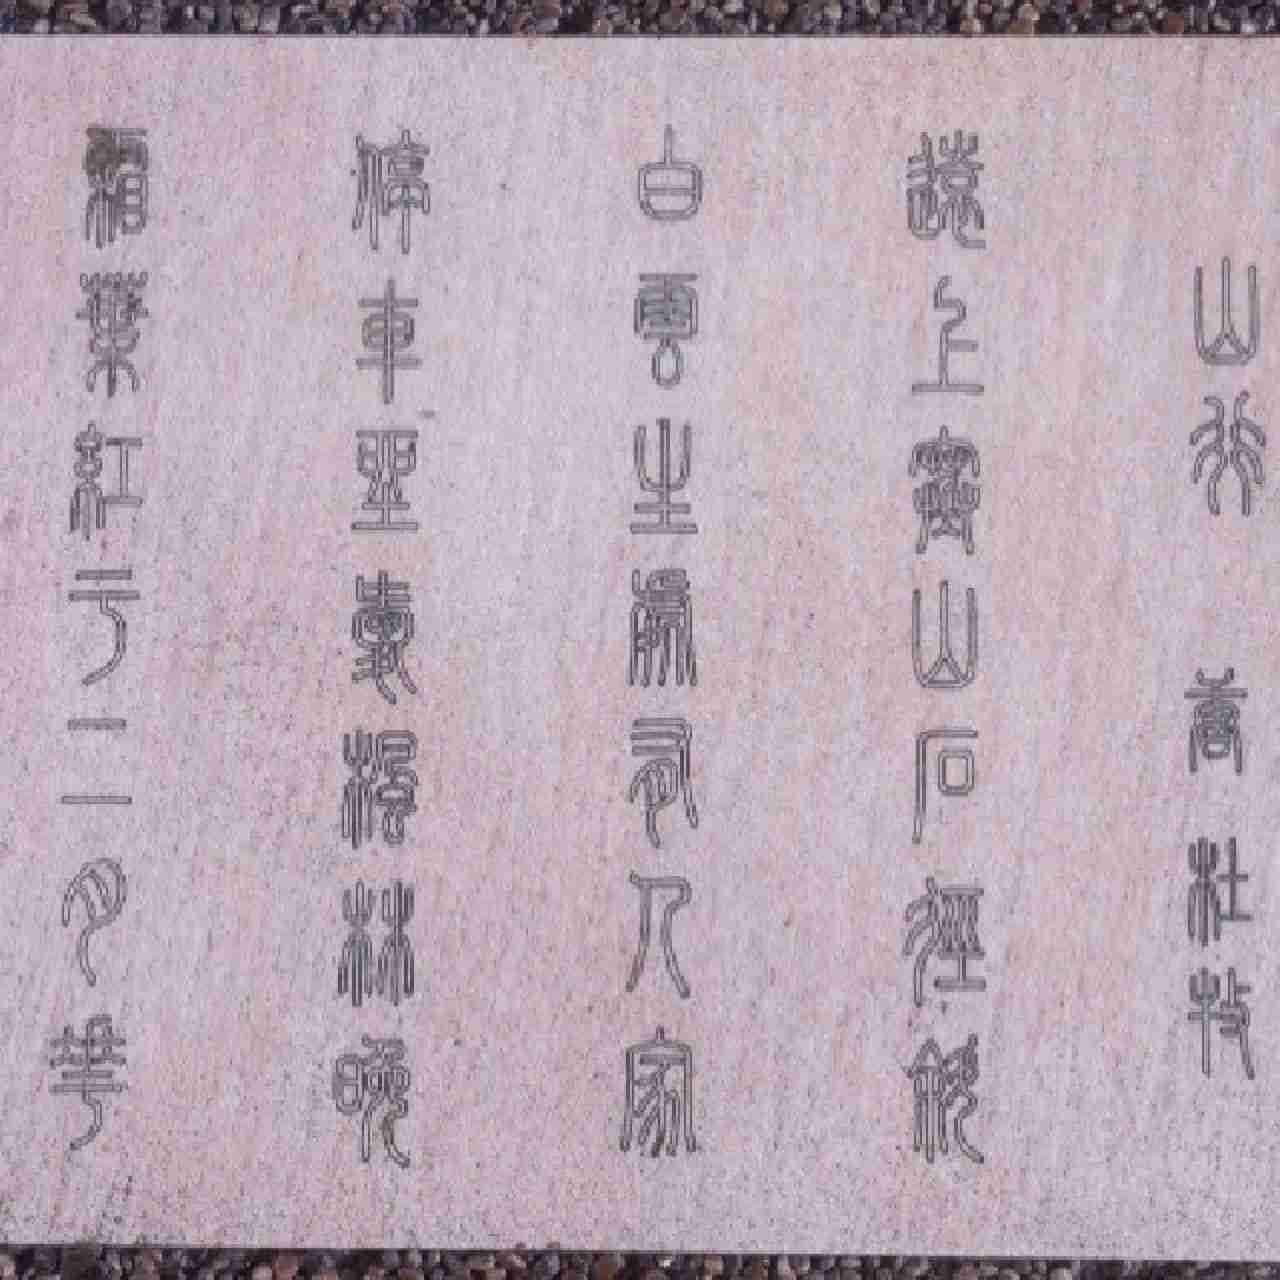 山行 唐 杜牧
遠上寒山石徑斜
白雲生處有人家
停車坐愛楓林晚
霜葉紅于二月華